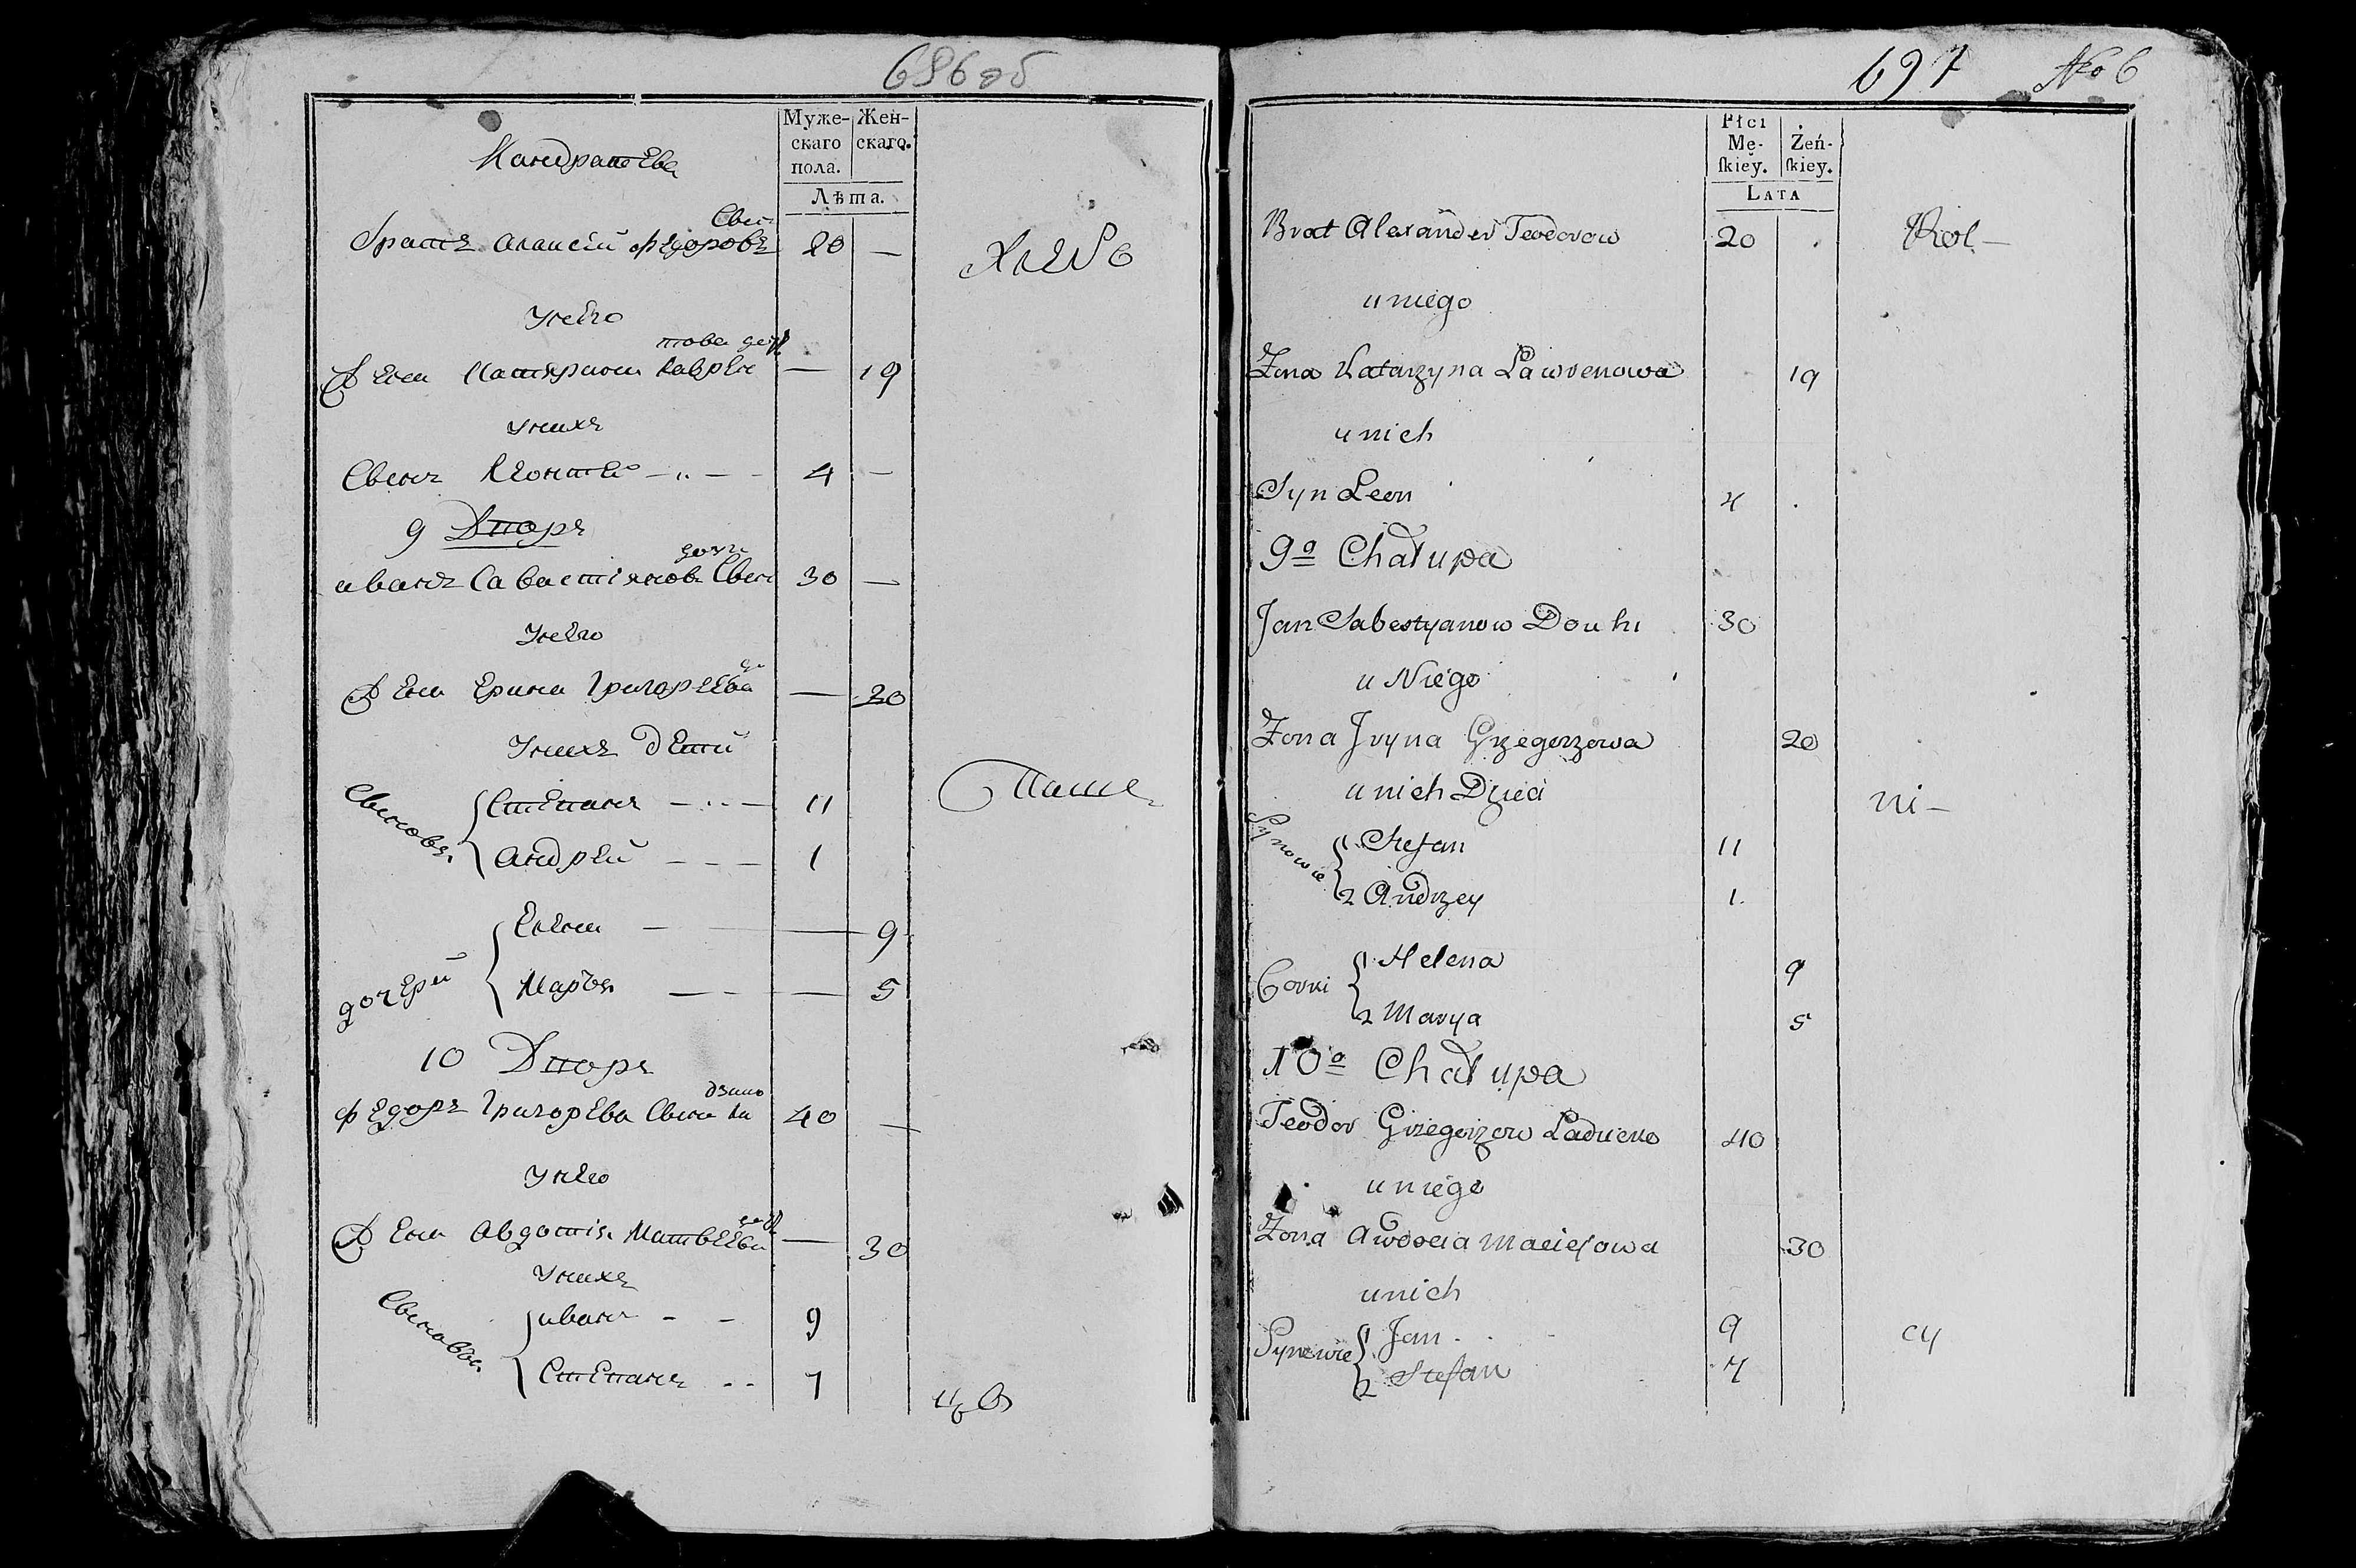 696 об
Кандратьева
Муже-
скаго
пола.
Жен-
скаго.
Лѣта.
Сын
братъ Алексѣй Федоровъ 20 —
Хлеб
Унего
това доч
Жена Катярина Лаврен — 19
Унихъ
Сынъ Леонтей 4 —
9 Дворъ
Иванъ Савастіяновъ Сын 30 —
Унего
Жена Ерина Григорьева — 20
Унихъ дети
Сыновья
Степанъ 11
Паше
Андрей 1
дочери
Елена — 9
Марья — 5
10 Дворъ
Федоръ Григорьевъ Сын 40 —
Унего
Жена Авдотія Матвеева — 30
Унихъ
Сыновья
Иванъ 9
Степанъ 7
цы
697 No 6
Płci
Mę-
ſkiey.
Żeń-
ſkiey.
Lata
Brat Alexander Teodorow 20
Rol—
u niego
Zona Katarzyna Lawrenowa 19
u nich
Syn Leon 4
9a Chałupa
Jan Sabestyanow 30
u Niego
Zona Jryna Grzegorzowa 20
u nich Dzieci
ni—
Synowie
1 Stefan 11
2 Andrzey 1
Corki
1 Helena 9
2 Marya 5
10a Chałupa
Teodor Grzegorzow 40
u niego
Zona Awdocia Maciejowa 30
u nich
Synowie
1 Jan 9
cy
2 Stefan 7